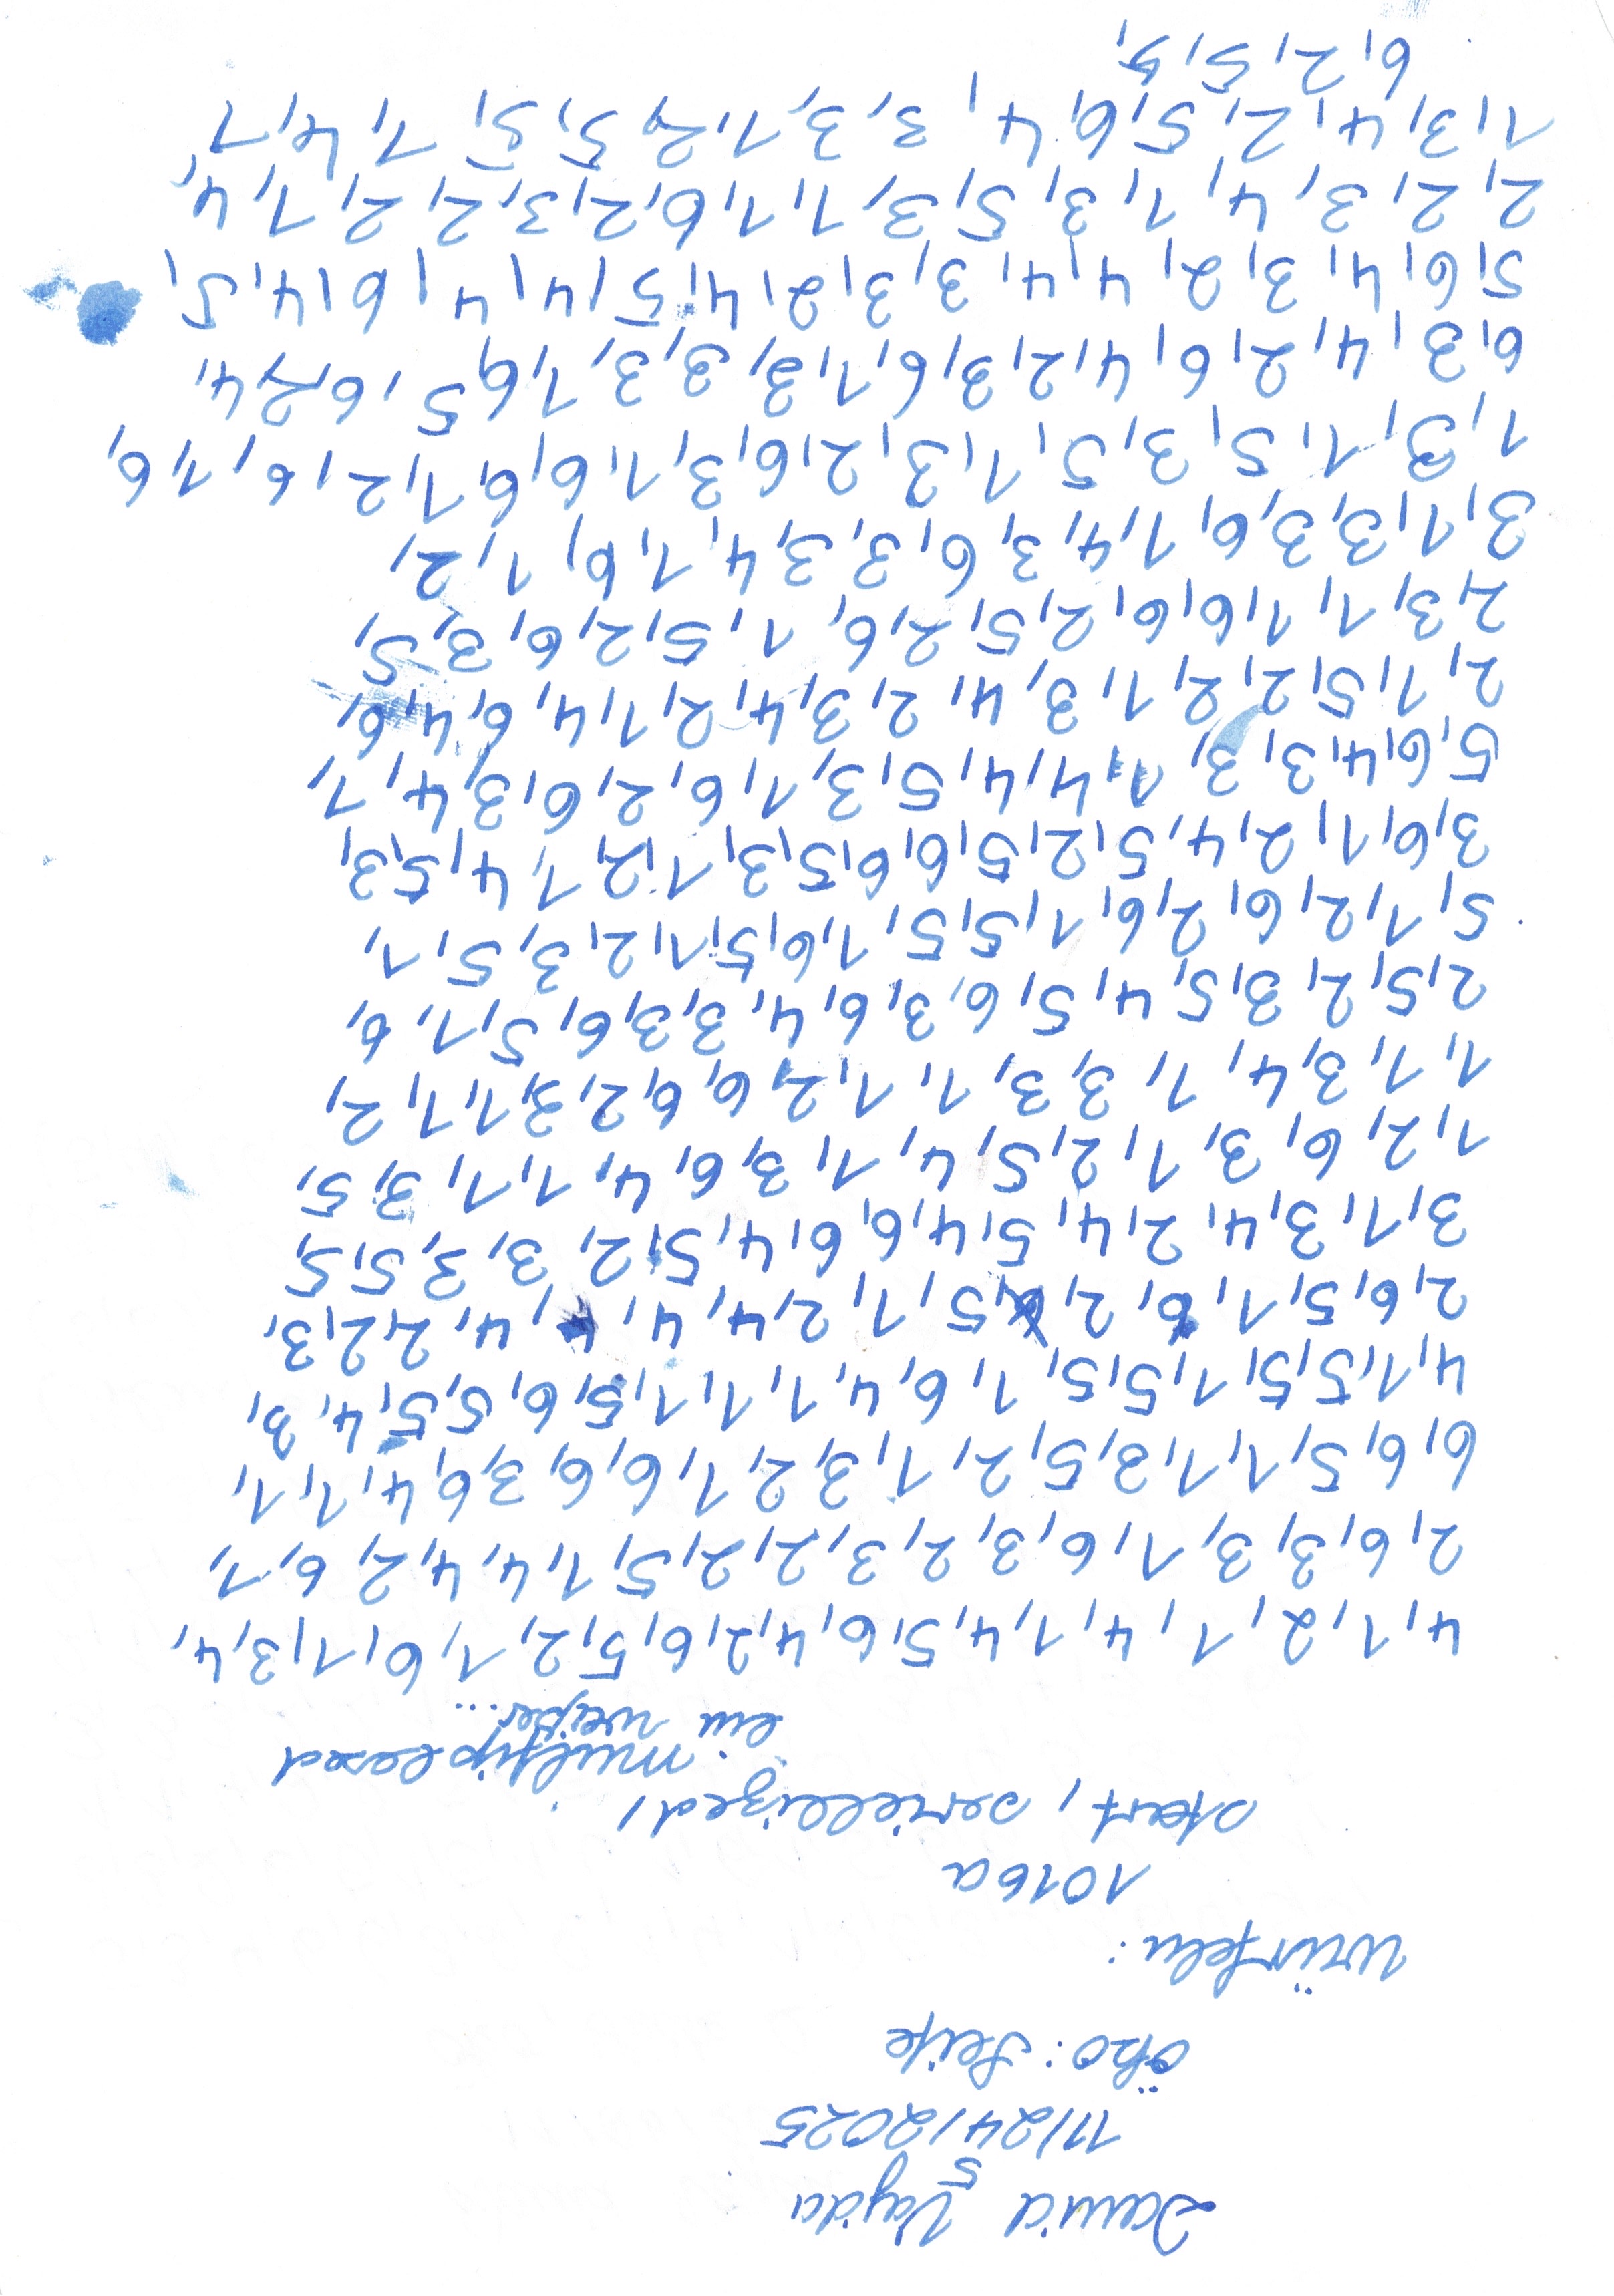 David Vajda
5
11/24/2025
öko: Seife
Würfeln:
1016a
start, seriellized, multiplexed
ein weißer...
4,1,2,1,4,1,4,5,6,4,2,6,5,2,1,6,1,3,4,
2,6,3,3,1,6,3,2,3,2,2,5,1,4,4,2,6,1,
6,6,5,1,1,3,5,2,1,3,2,1,6,6,3,6,4,1,1,
4,1,5,5,1,5,5,1,6,4,1,1,1,5,6,5,5,4,3,
2,6,5,1,6,2,5,1,2,4,4,4,4,2,2,3,
3,1,3,4,2,4,5,4,6,6,4,5,2,3,3,5,5
1,2,6,3,1,2,5,4,1,3,6,4,1,1,3,5,
1,1,3,4,1,3,3,1,1,2,6,6,2,3,1,1,2,
2,5,2,3,5,4,5,6,3,6,4,3,3,6,5,1,6,
5,1,2,6,2,6,1,5,5,1,6,5,1,2,3,5,1,
3,6,1,2,4,5,2,5,6,6,5,3,1,2,1,4,5,3,
5,6,4,3,3,1,4,4,5,3,1,6,2,6,3,4,1,
2,1,5,2,2,1,3,4,2,3,4,2,1,4,6,4,6,
2,3,1,1,6,6,2,5,2,6,1,5,2,6,3,5,
3,1,3,3,6,1,4,3,6,3,3,4,1,6,1,2,
1,3,1,5,3,5,1,3,2,6,3,1,6,6,1,2,6,1,6,
6,3,4,2,6,4,2,3,6,1,3,3,3,1,6,5,6,2,4,
5,6,4,3,2,4,4,3,3,2,4,5,4,4,6,4,5,
2,2,3,4,1,3,5,3,1,1,6,2,3,2,2,1,4,
1,3,4,2,5,6,4,3,3,1,2,5,5,1,4,1
6,2,5,5,